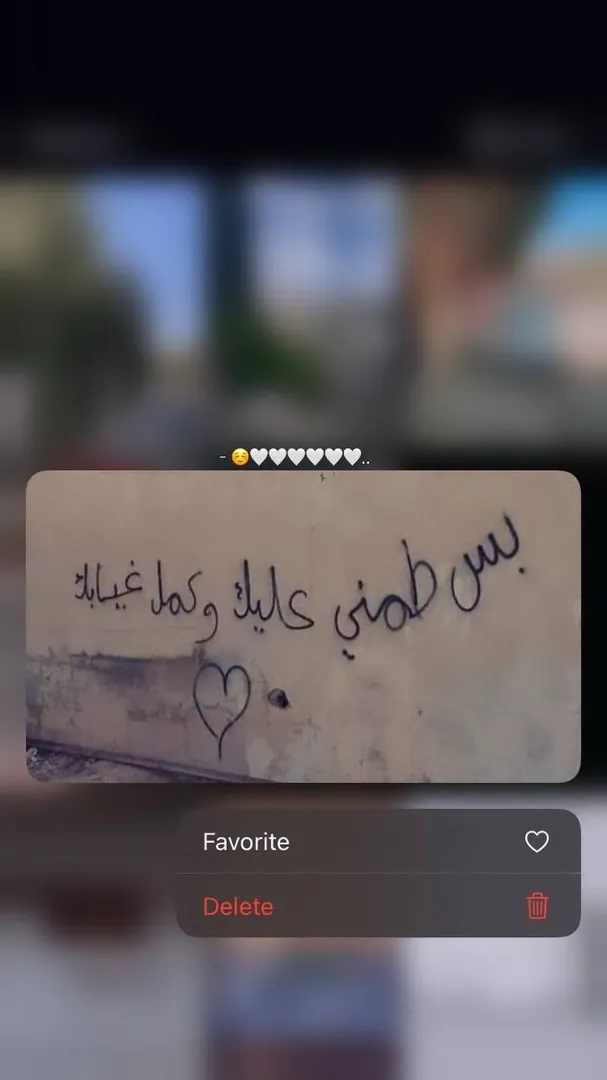 - ☺️🤍🤍🤍🤍🤍🤍..
بس طمني عليك وكمل غيابك
Favorite
Delete